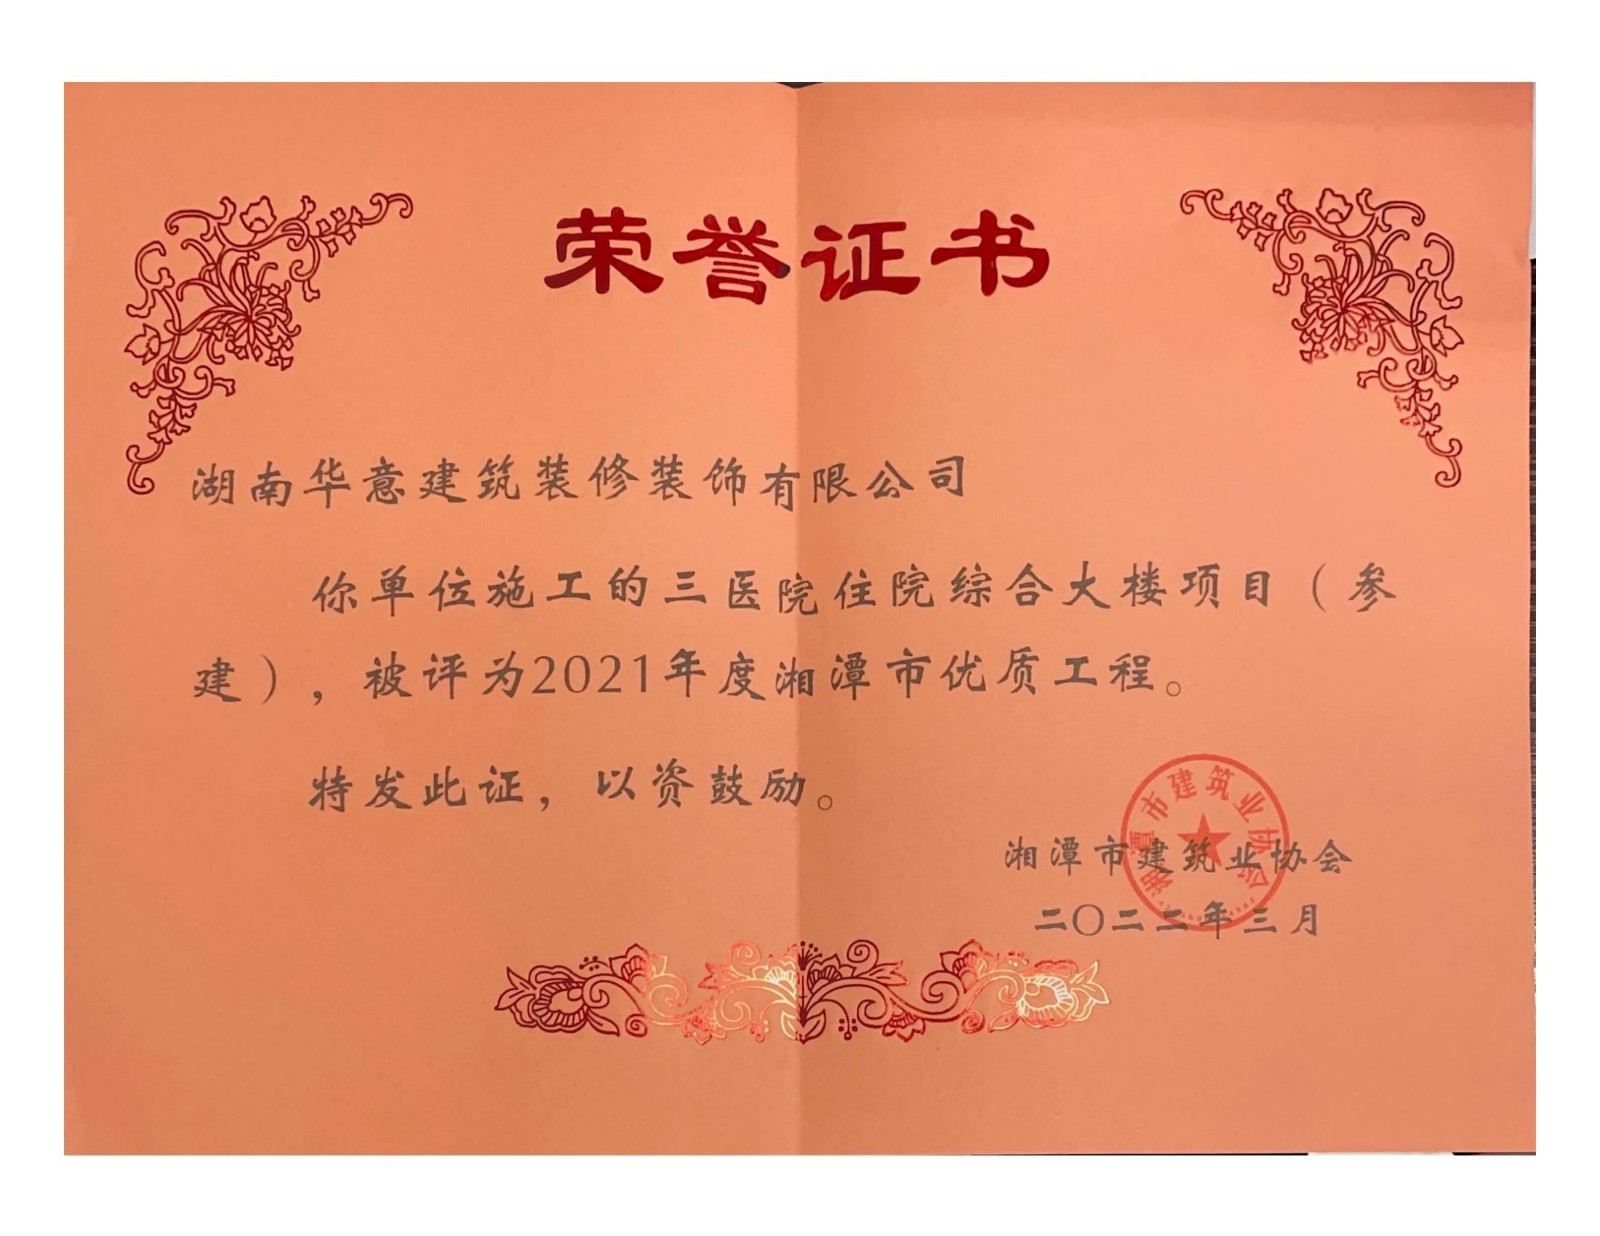 荣誉证书
湖南华意建筑装修装饰有限公司
你单位施工的三医院住院综合大楼项目（参
建），被评为2021年度湘潭市优质工程。
特发此证，以资鼓励。
湘潭市建筑业协会
湘潭市建筑业协会
二〇二二年三月